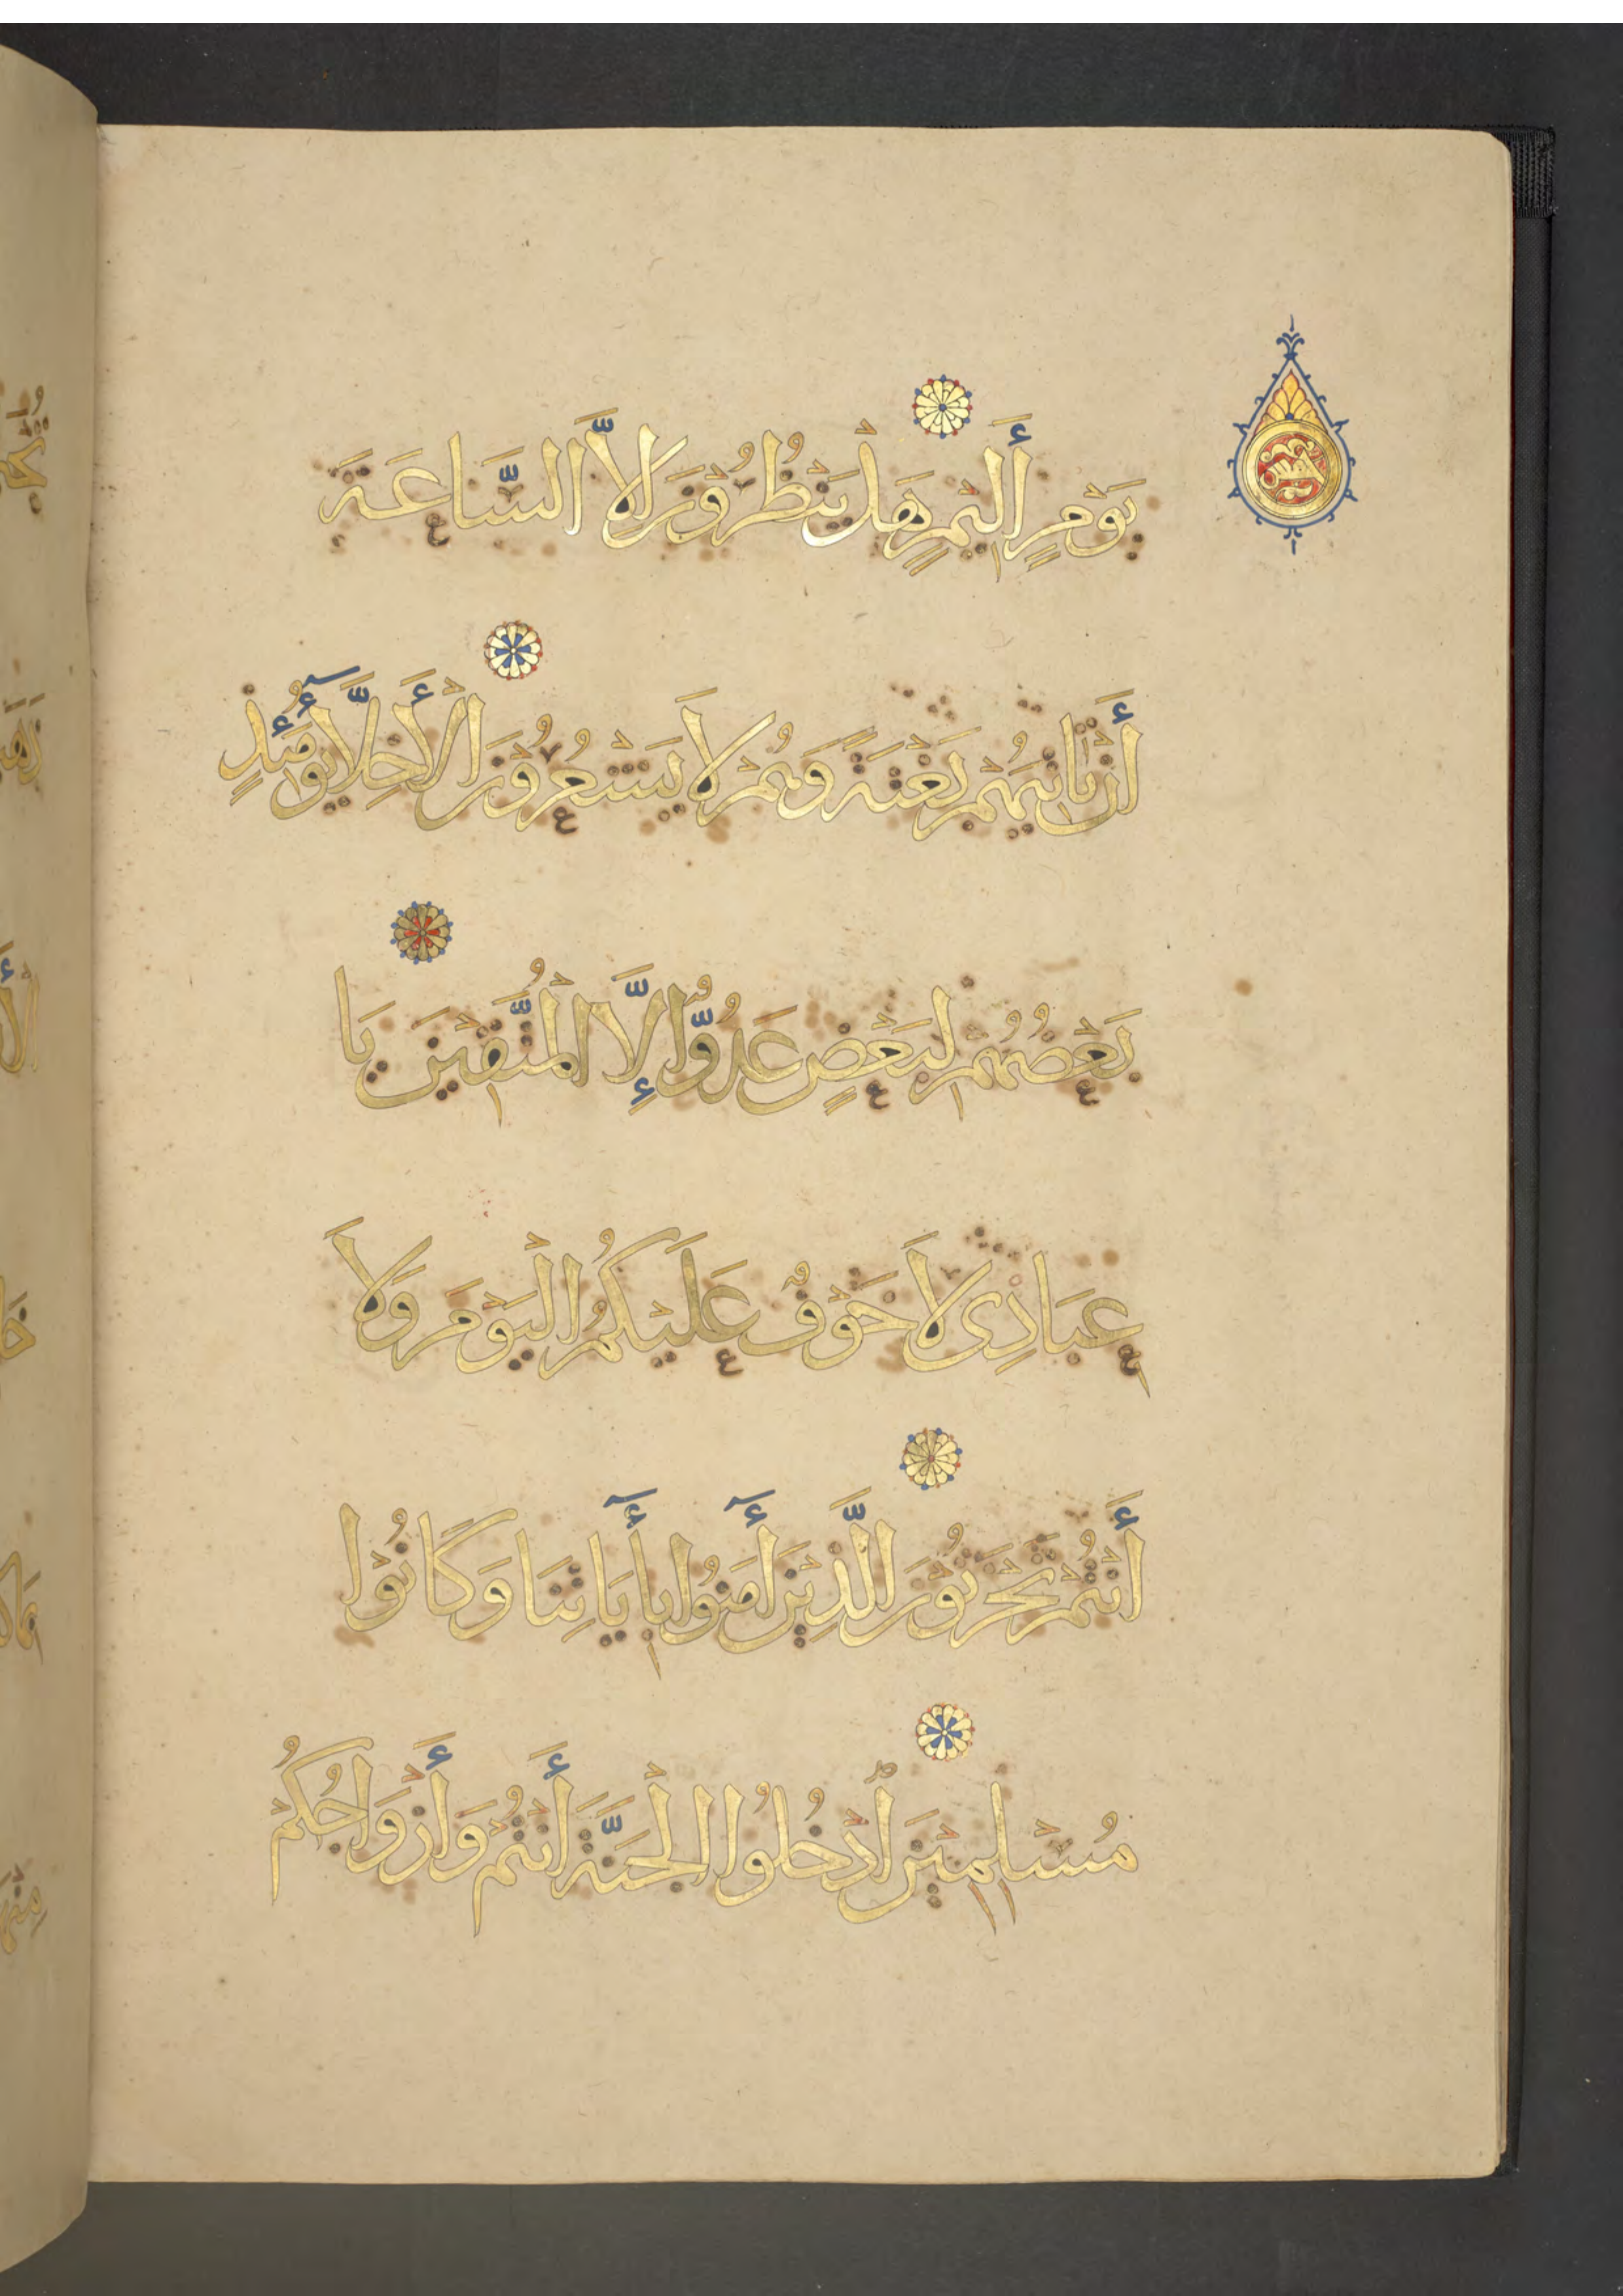 يَوْمٍ أَلِيْمٍ هَلْ يَنْظُرُوْنَ إلاَّ السَّاعَةَ
أَنْ تَأْتِيَهُمْ بَغْتَةً وَهُمْ لاَ يَشْعُرُوْنَ الْأَخِلَّاءُ يَوْمَئِذٍ
بَعْضُهُمْ لِبَعْضٍ عَدُوٌّ إِلَّا الْمُتَّقِيْنَ يَا
عِبَادِى لاَ خَوْفٌ عَلَيْكُمُ الْيَوْمَ وَلاَ
أَنْتُمْ تَحْزَنُوْنَ الَّذِيْنَ أٓمَنُوْا بِأٓيَاتِنَا وَكَانُوْا
مُسْلِمِيْنَ اُدْخُلُوْا الْجَنَّةَ أَنْتُمْ وَأَزْوَاجُكُمْ